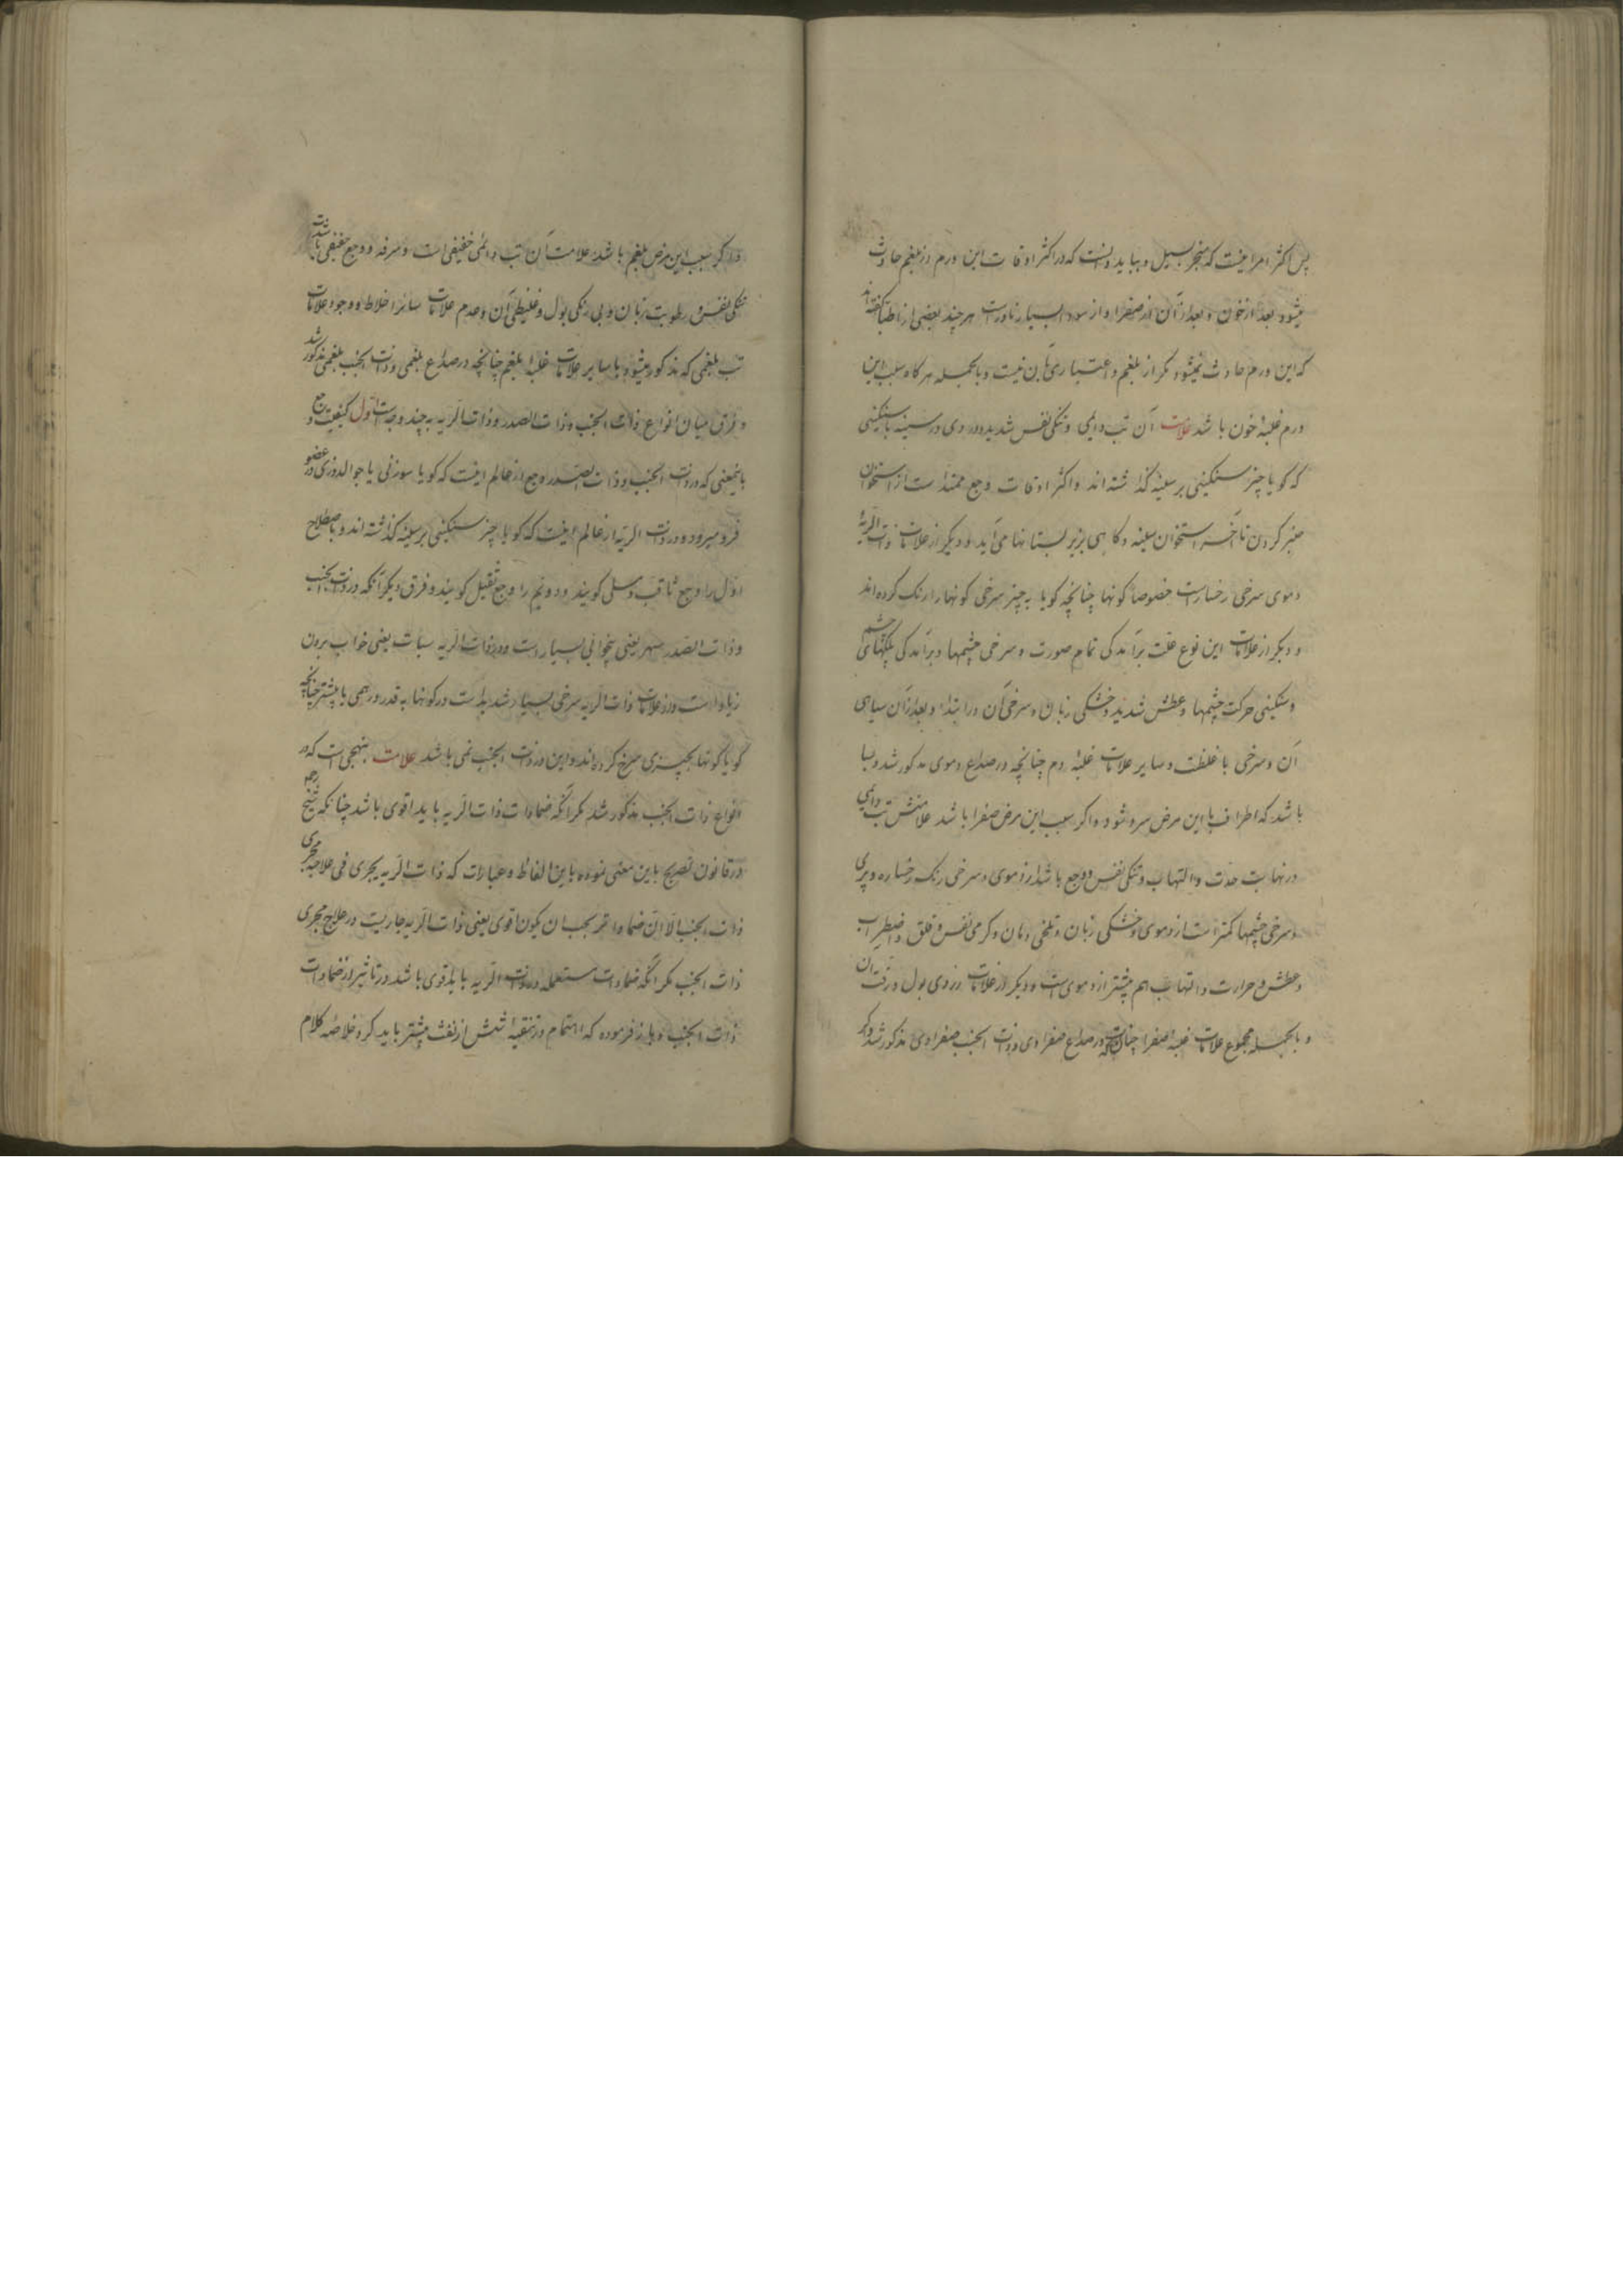 پس اکثر امر اینست که منجر بسیل و بباید دانست که در اکثر اوقات این ورم از بلغم حادث
میشود و بعد از خون و بعد از آن از صفرا و از سودا بسیار نادرست هر چند بعضی از اطبا گفته‌اند
که این ورم حادث نمیشود مگر از بلغم و اعتباری بآن نیست و بالجمله هر گاه سبب این
ورم غلبهٔ خون باشد علامت آن تب دایمی و تنگی نفس شدید و دردی در سینه با سنگینی
که گویا چیز سنگینی بر سینه گذاشته‌اند و اکثر اوقات وجع ممتد است از استخوان
میز کردن تا آخر استخوان سینه و گاهی بزیر پستانها می‌آید و دیگر از علامات ذات الریهٔ
دموی سرخی رخسارست خصوصا گونها چنانچه گویا به چیز سرخی گونها را رنگ کرده‌اند
و دیگر از علامات این نوع علت برآمدگی تمام صورت و سرخی چشمها و برآمدگی پلکهای چشم
و سنگینی حرکت چشمها و عطش شدید و خشکی زبان و سرخی آن در ابتدا و بعد از آن سیاهی
آن و سرخی با غلظت و سایر علامات غلبه دم چنانچه در صداع دموی مذکور شد و بسا
باشد که اطراف با این مرض سرد شود و اگر سبب این مرض صفرا باشد علامتش تب دایمی
در نهایت حدت و التهاب و تنگی نفس و وجع باشد از دموی و سرخی رنگ رخساره و پری
و سرخی چشمها کمتر است از دموی و خشکی زبان و تلخی دهان و گرمی نفس و قلق و اضطراب
و عطش و حرارت و التهاب هم بیشتر از دموی است و دیگر از علامات زردی بول و رقت آن
و بالجمله مجموع علامات غلبه صفرا چنانکه در صداع صفراوی و ذات الجنب صفراوی مذکور شد و اگر
و اگر سبب این مرض بلغم باشد علامت آن تب دایمی خفیفی است و سرفه و وجع خفیفی باشد
تنگی نفس و رطوبت زبان و بی رنگی بول و غلیظی آن و عدم علامات سایر اخلاط و وجود علامات
تب بلغمی که مذکور میشود با سایر علامات غلبه بلغم چنانچه در صداع بلغمی و ذات الجنب بلغمی مذکور شد
و فرق میان انواع ذات الجنب و ذات الصدر و ذات الریه به چند وجه است اول کیفیت وجع
باینمعنی که در ذات الجنب و ذات الصدر وجع از عالم اینست که گویا سوزنی یا جوالدوزی در عضو
فرو میرود و در ذات الریه از عالم اینست که گویا چیز سنگینی بر سینه گذاشته‌اند و باصطلاح
اول را وجع ثاقب و سلی گویند و دویم را وجع ثقیل گویند و فرق دیگر آنکه در ذات الجنب
و ذات الصدر سهر یعنی بیخوابی بسیار است و در ذات الریه سبات یعنی خواب برون
زیاد است و از علامات ذات الریه سرخی بسیار شدید است در گونها به قدر درهمی یا بیشتر چنانکه
گویا گونها بچیزی سرخ کرده‌اند و این در ذات الجنب نمی باشد علامت بنهجی است که در
انواع ذات الجنب مذکور شد مگر آنکه ضمادات ذات الریه باید اقوی باشد چنانکه شیخ رحمه
در قانون تصریح باین معنی نموده باین الفاظ و عبارات که ذات الریه یجری فی علاجه مجری
ذات الجنب الا ان ضماداته یجب ان یکون اقوی یعنی ذات الریه جاریست در علاج مجری
ذات الجنب مگر آنکه ضمادات مستعمله در ذات الریه باید قوی باشد در تاثیر از ضمادات
ذات الجنب و باز فرموده که اهتمام در تنقیهٔ شش از نفث بیشتر باید کرد و خلاصه کلام